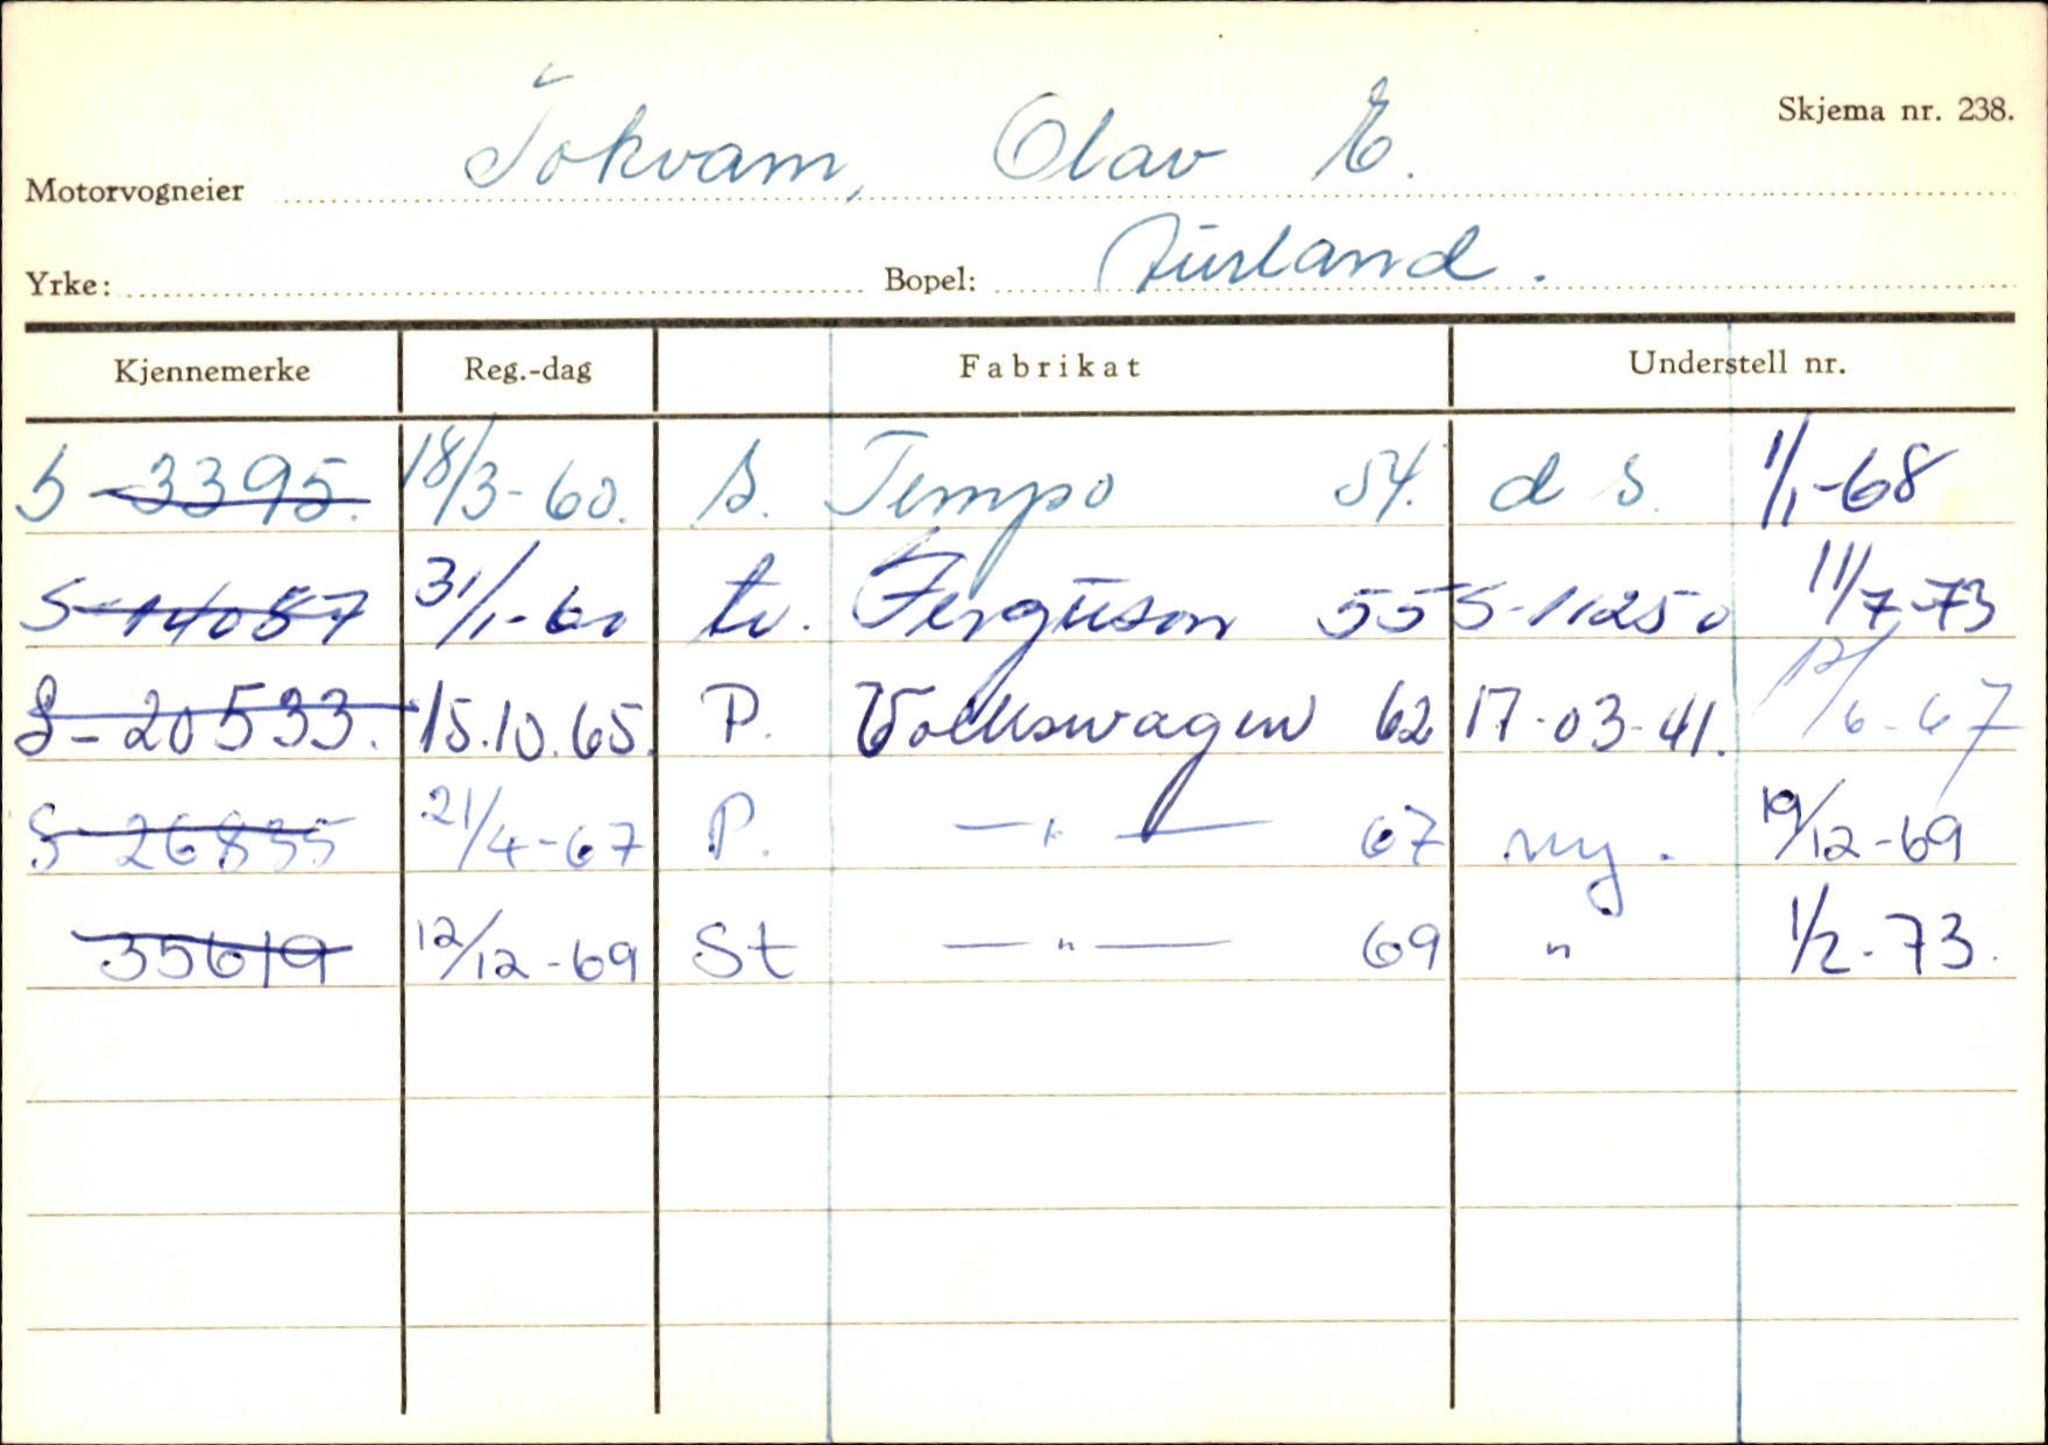 Skjema nr. 238.
Motorvogneier Tokvam, Olav E.
Yrke: Bopel: Aurland.
Kjennemerke Reg.-dag Fabrikat Understell nr.
S-3395. 18/3-60. S. Tempo 54. d S. 1/1-68
S-14087 31/1-60 tr. Ferguson 55 S-11250 11/7-73
S-20533. 15.10.65. P. Volkswagen 62 17-03-41. 12/6-67
S-26835 21/4-67 P. —"— 67 ny. 19/12-69
35619 12/12-69 St —"— 69 " 1/2-73.